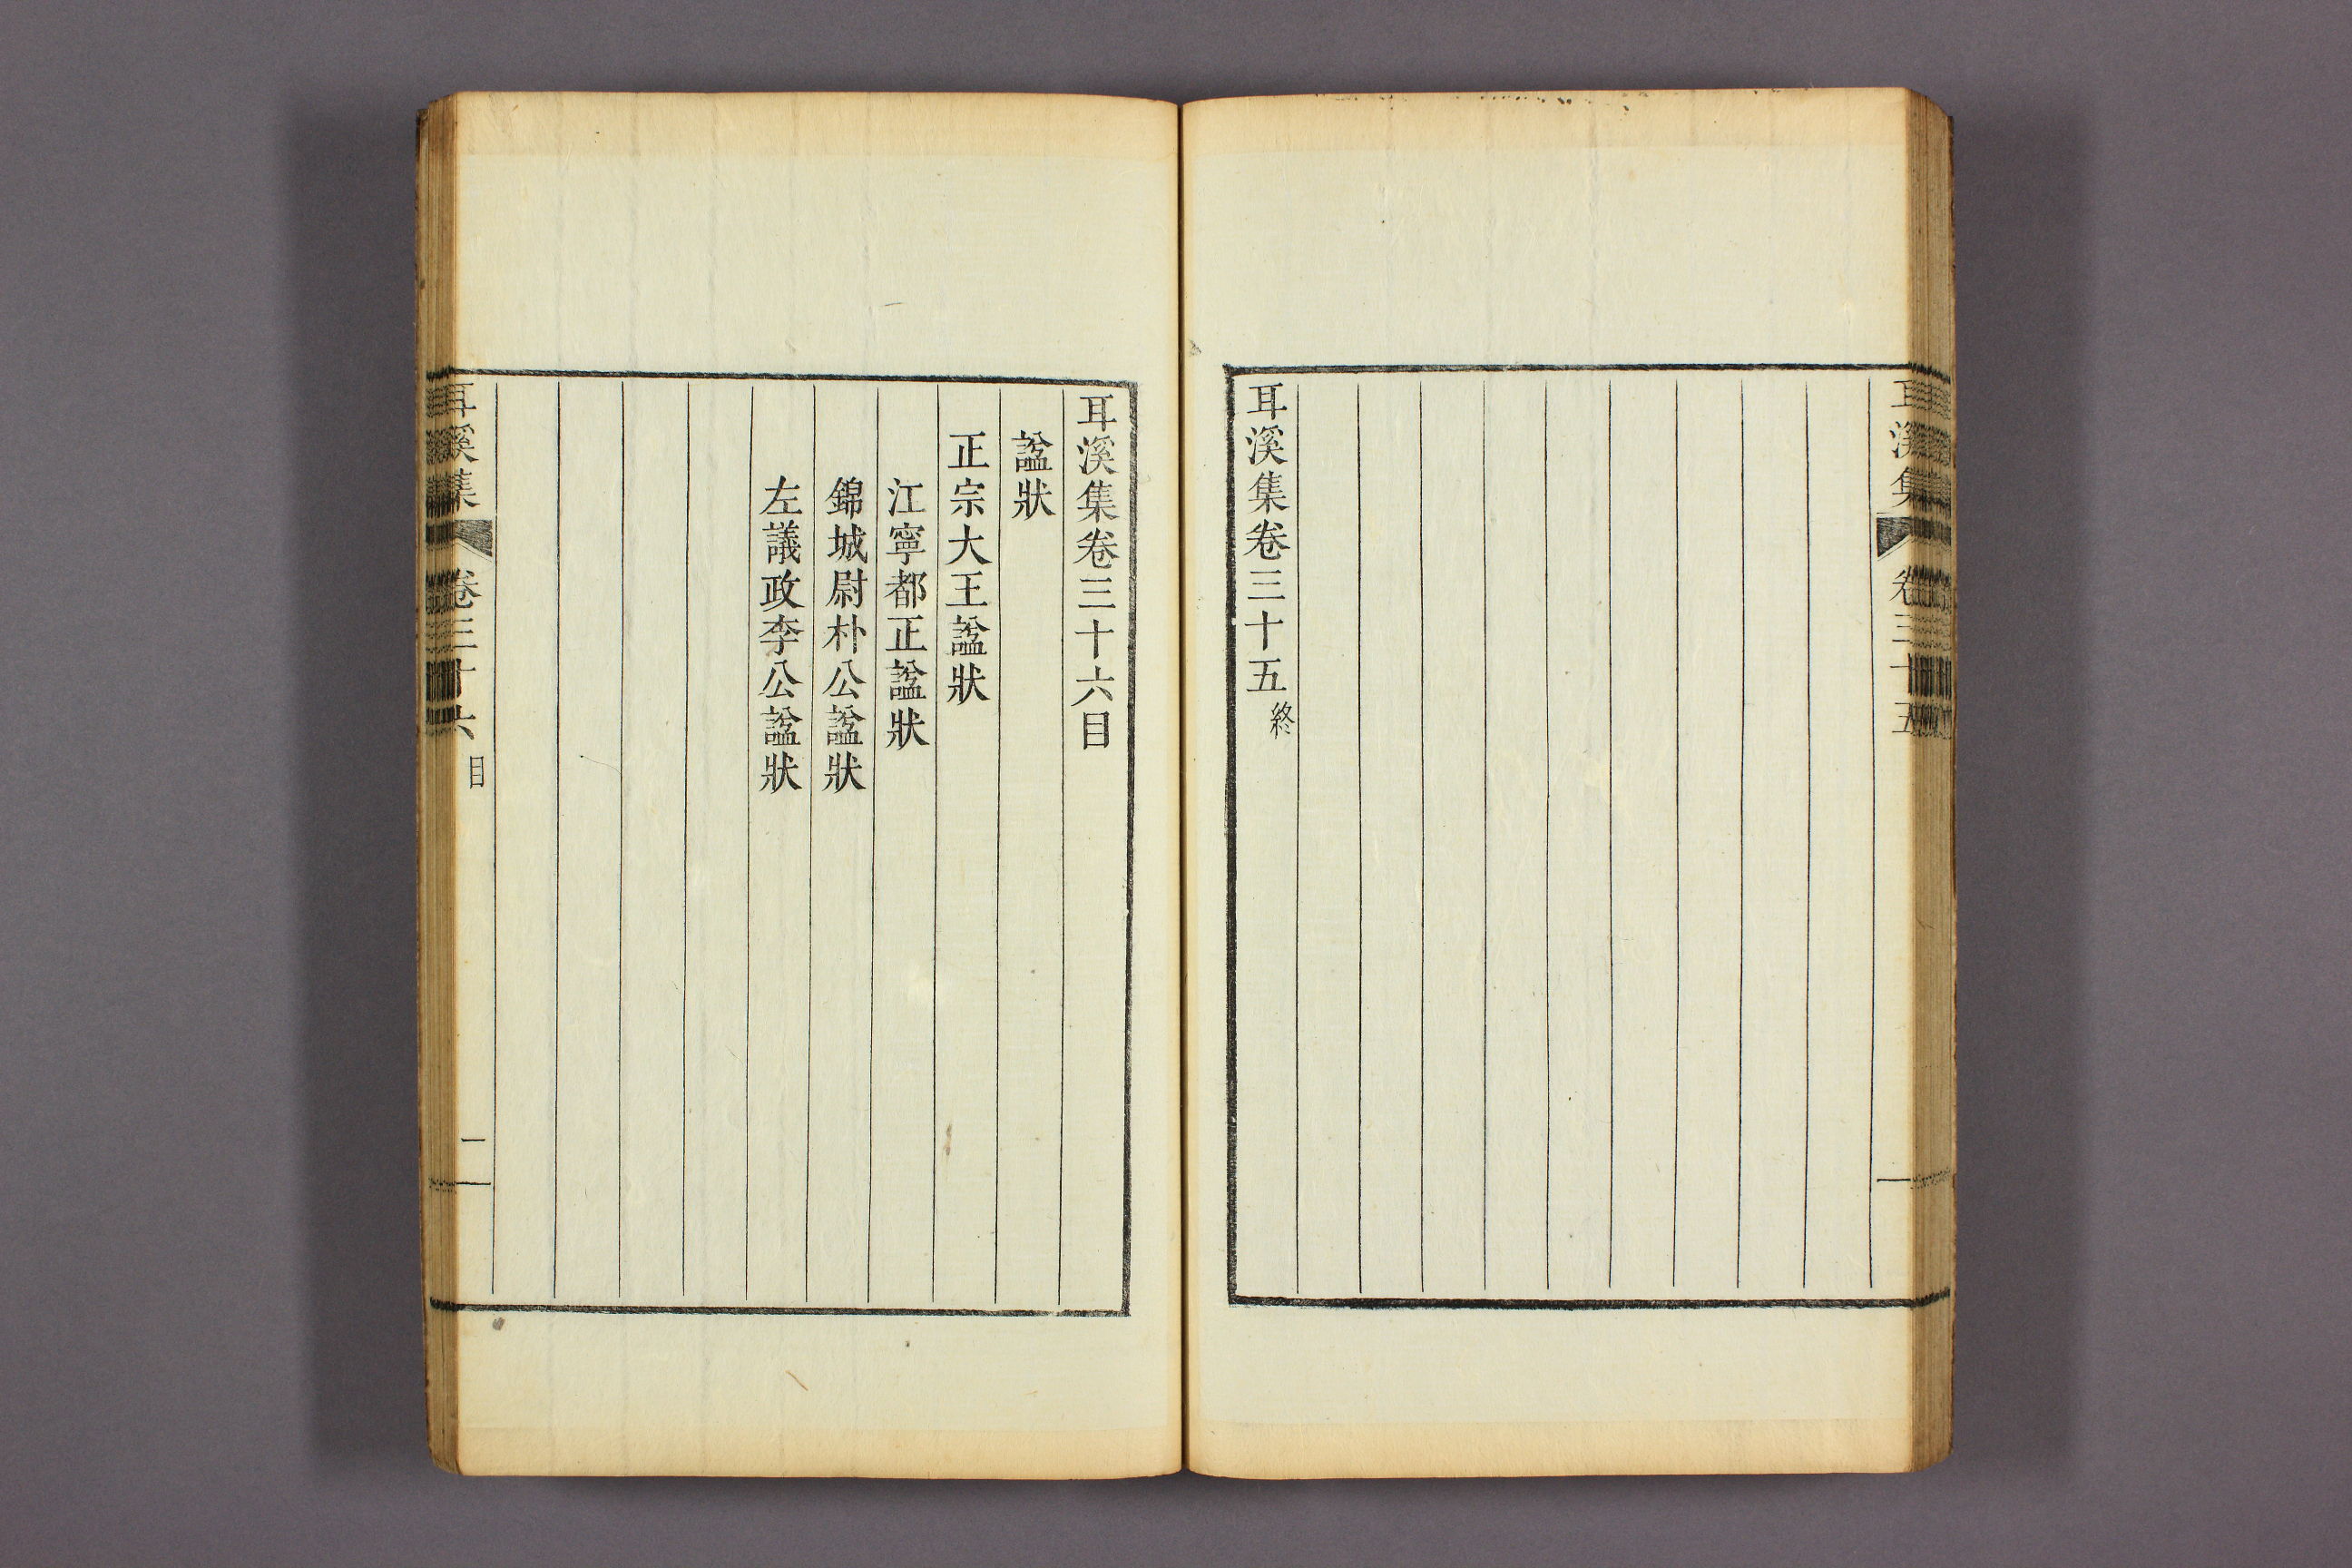 耳溪集 卷三十五
耳溪集卷三十五終
耳溪集卷三十六目
諡狀
正宗大王諡狀
江寧都正諡狀
錦城尉朴公諡狀
左議政李公諡狀
耳溪集 卷三十六 目 二